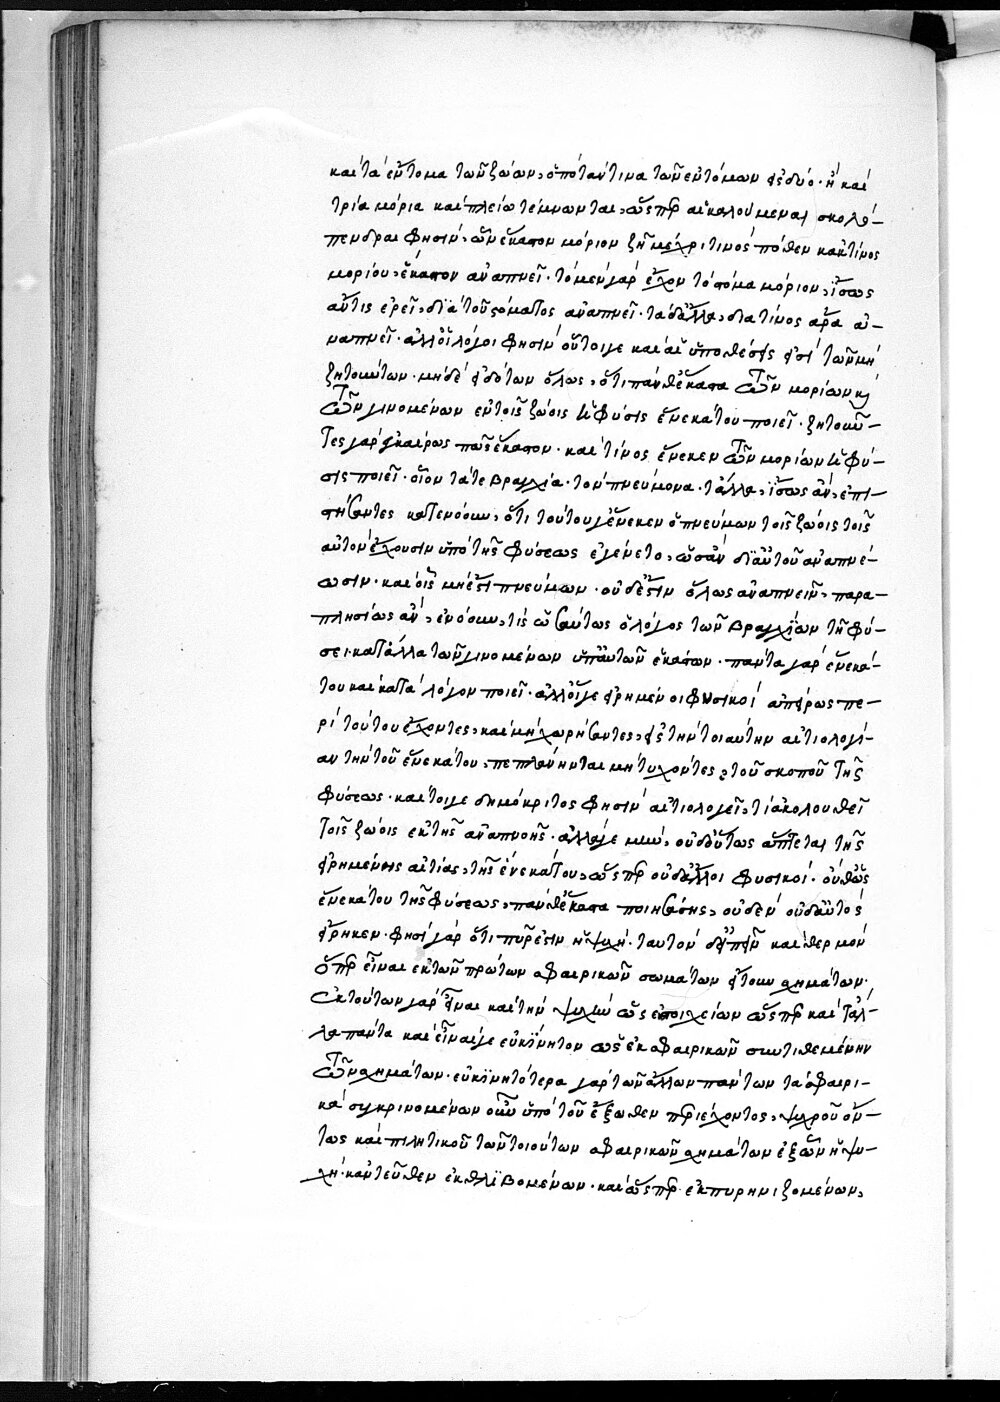 καὶ τὰ ἔντομα τῶν ζώων, ὁπόταν τινα τῶν ἐντόμων εἰς δύο. ἢ καὶ
τρία μόρια καὶ πλείω τέμνωνται, ὥσπερ αἱ καλούμεναι σκολο-
πένδραι φησὶν, ὧν ἕκαστον μόριον ζῆ μέχρι τινός πόθεν κἀκ τίνος
μορίου, ἕκαστον ἀναπνεῖ. τὸ μὲν γὰρ ἔχον τὸ στόμα μόριον, ἴσως
ἄν τις ἐρεῖ, διὰ τοῦ στόματος ἀναπνεῖ. τὰ δ' ἄλλα, διὰ τίνος ἄρα ἀ-
ναπνεῖ. ἀλλ' οἱ λόγοι φησὶν οὗτοί γε καὶ αἱ ὑποθέσεις εἰσὶ τῶν μὴ
ζητούντων. μηδὲ εἰδότων ὅλως, ὅτι πάνθ' ἕκαστα τῶν μορίων καὶ
τῶν γινομένων ἐν τοῖς ζώοις ἡ φύσις ἕνεκά του ποιεῖ. ζητοῦν-
τες γὰρ εὐκαίρως πῶς ἕκαστον. καὶ τίνος ἕνεκεν τῶν μορίων ἡ φύ-
σις ποιεῖ. οἷον τά τε βραγχία. τὸν πνεύμονα. τἄλλα, ἴσως ἂν, ἐπι-
στήσαντες κατενόουν, ὅτι τούτου γ' ἕνεκεν ὁ πνεύμων τοῖς ζώοις τοῖς
αὐτὸν ἔχουσιν ὑπὸ τῆς φύσεως ἐγένετο, ὡς ἂν δι' αὐτοῦ ἀναπνέ-
ωσιν. καὶ οἷς μή ἐστι πνεύμων. οὐδ' ἔστιν ὅλως ἀναπνεῖν, παρα-
πλησίως ἂν, ἐνόουν, τίς ὡσαύτως ὁ λόγος τῶν βραγχίων τῇ φύ-
σει. καὶ τἄλλα τῶν γινομένων ὑπ' αὐτῶν ἑκάστων. πάντα γὰρ ἕνεκά-
του καὶ κατὰ λόγον ποιεῖ. ἀλλ' οἵ γε εἰρημένοι φυσικοὶ ἀπείρως πε-
ρὶ τούτου ἔχοντες, καὶ μὴ χωρήσαντες, εἰς τὴν τοιαύτην αἰτιολογί-
αν τὴν τοῦ ἕνεκά του, πεπλάνηνται μὴ τυχόντες, τοῦ σκοποῦ τῆς
φύσεως. καί τοι γε δημόκριτος φησὶν αἰτιολογεῖ, τί ἀκολουθεῖ
τοῖς ζώοις ἐκ τῆς ἀναπνοῆς. ἀλλά γε μὴν, οὐδ' οὕτως ἅπτεται τῆς
εἰρημένης αἰτίας, τῆς ἕνεκά του, ὥσπερ οὐδ' ἄλλοι φυσικοί. οὐθ' ὡς
ἕνεκά του τῆς φύσεως, πάνθ' ἕκαστα ποιησάσης, οὐδὲν οὐδ' αὐτὸς
εἴρηκεν. φησὶ γὰρ ὅτι πῦρ ἐστιν ἡ ψυχή. ταυτὸν δ' εἰπεῖν καὶ θερμὸν
ὅπερ εἶναι ἐκ τῶν πρώτων σφαιρικῶν σωμάτων εἴτουν σχημάτων.
ἐκ τούτων γὰρ εἶναι καὶ τὴν ψυχὴν ὡς ἐκ στοιχείων ὥσπερ καὶ τἄλ-
λα πάντα καὶ εἶναί γε εὐκίνητον ὡς ἐκ σφαιρικῶν συντιθεμένην
τῶν σχημάτων. εὐκινητότερα γὰρ τῶν ἄλλων πάντων τὰ σφαιρι-
κά. συγκρινομένων οὖν ὑπὸ τοῦ ἔξωθεν περιέχοντος, ψυχροῦ ὄν-
τος καὶ πιλητικοῦ τῶν τοιούτων σφαιρικῶν σχημάτων ἐξ ὧν ἡ ψυ-
χή. κἀντεῦθεν ἐκθλιβομένων. καὶ ὥσπερ ἐκπυρηνιζομένων,